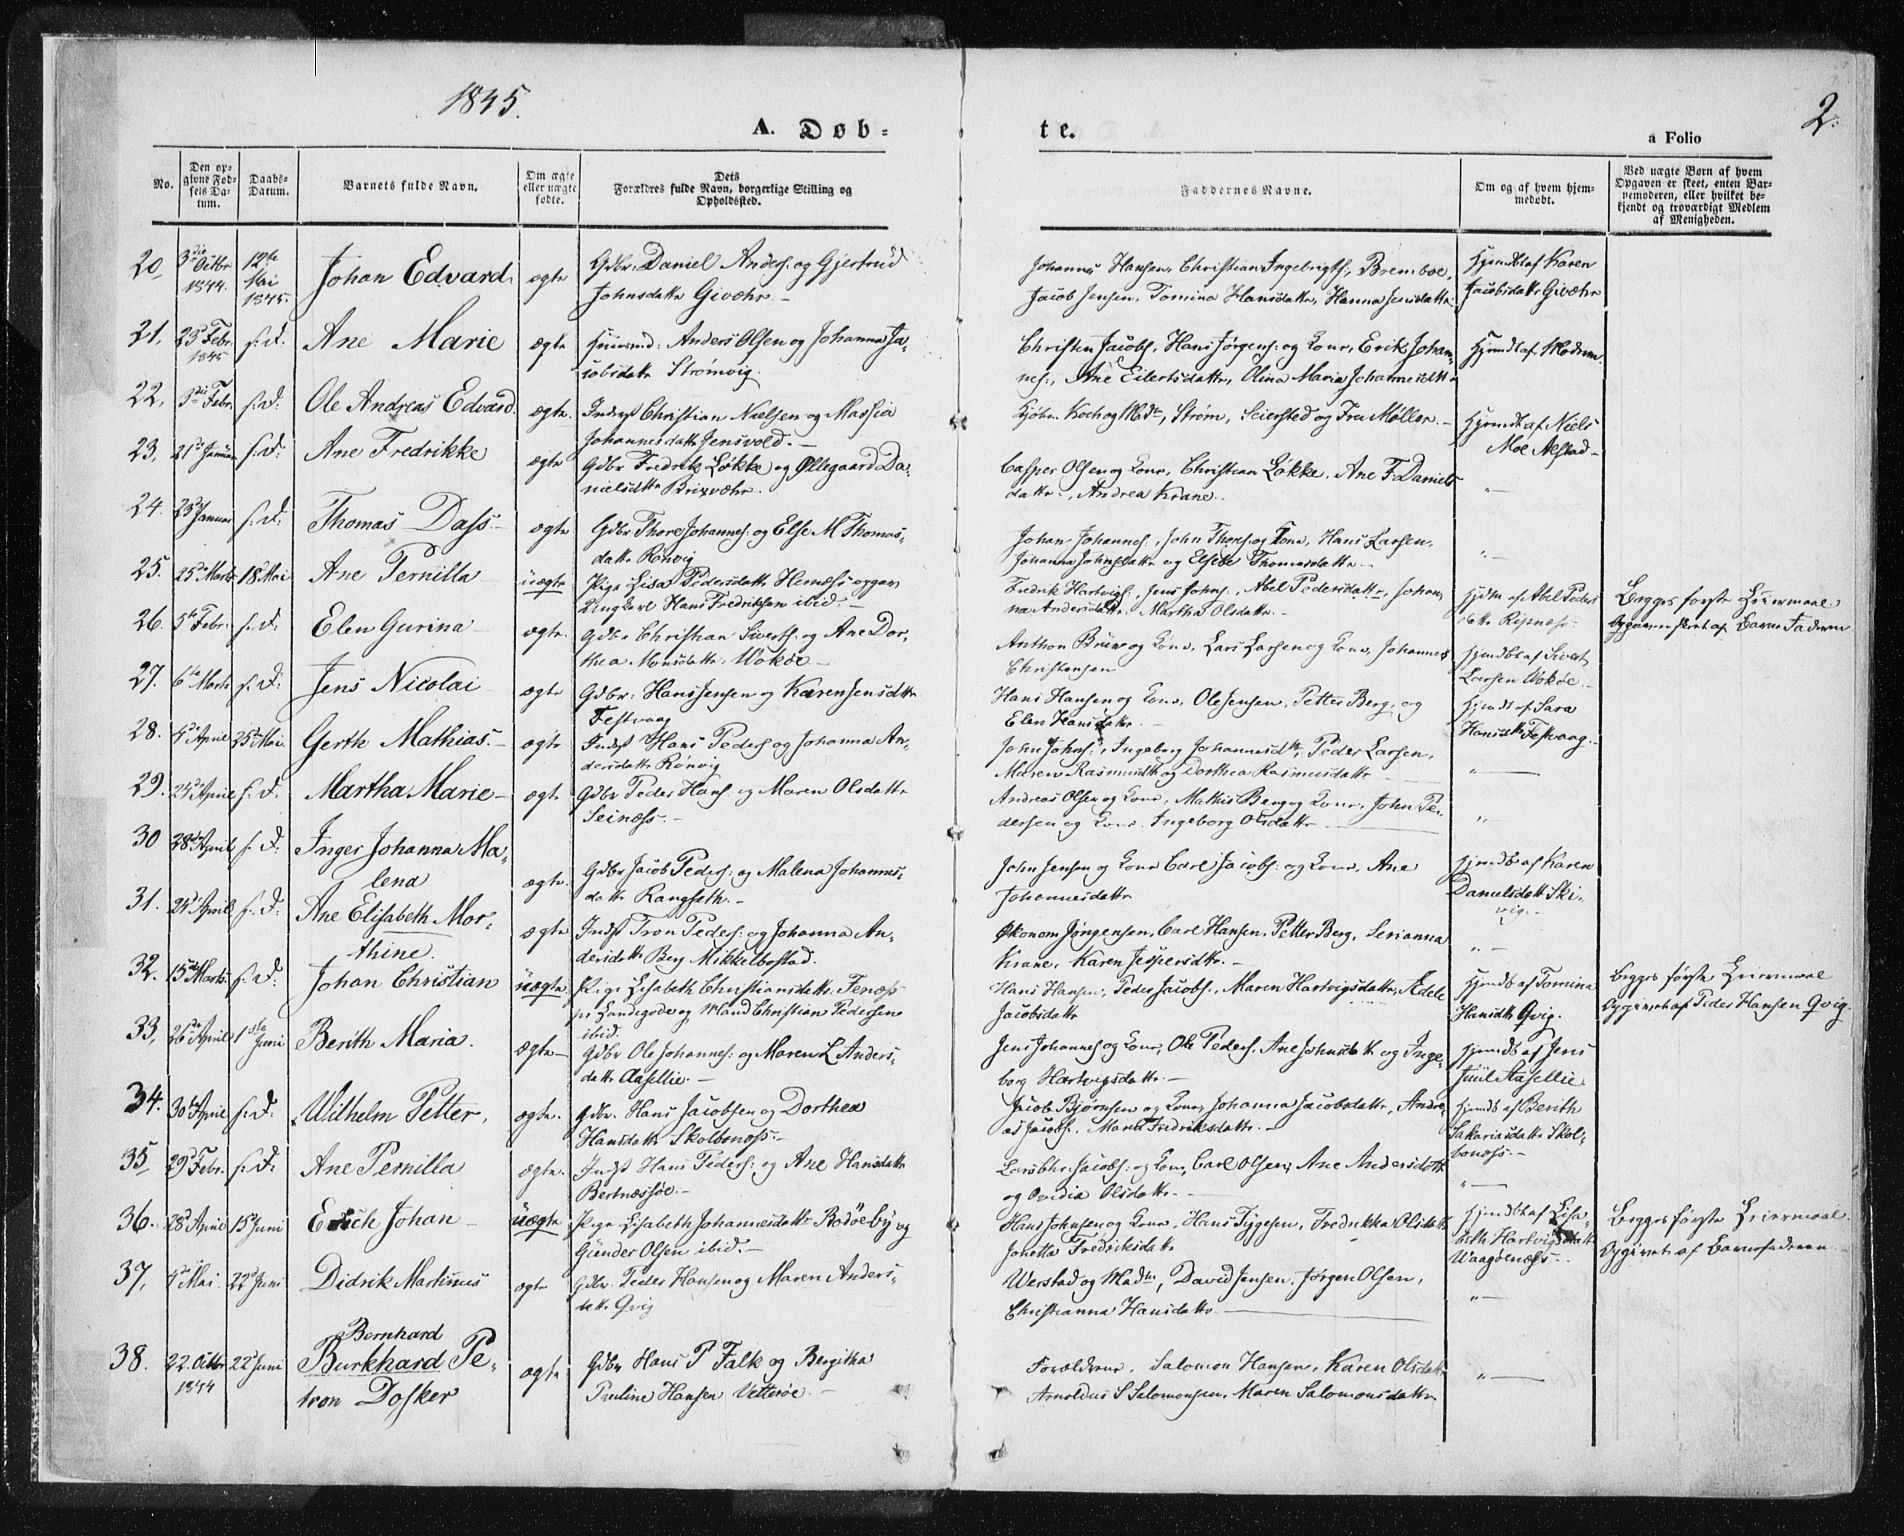 1845.
A. Døb-
te.
a Folio
2.
No.
Den op-
givne Fød-
sels Da-
tum.
Daabs-
Datum.
Barnets fulde Navn.
Om ægte
eller uægte
fødte.
Dets
Forældres fulde Navn, borgerlige Stilling og
Opholdssted.
Faddernes Navne.
Om og af hvem hjem-
medøbt.
Ved uægte Børn af hvem
Opgaven er skeet, enten Bar-
nemoderen, eller hvilket be-
kjendt og troværdigt Medlem
af Menigheden.
20 3die Octbr 1844. 12te Mai 1845. Johan Edvard. ægte
Gdbr. Daniel Anders: og Gjertrud
Johnsdattr Givæhr.
Johannes Hansen, Christian Ingebrigts., Bremboe,
Jacob Jensen, Tomina Hansdattr, Hanna Jensdattr.
Hjemdbt af Karen
Jacobsdattr Givæhr
21. 23 Febr. 1845 s: d: Ane Marie ægte
Anders Olsen og Johanna Ja-
cobsdattr Strømvig.
Christen Jacobs., Hans Jørgens: og Kone, Erik Johan-
nes:, Ane Eilertsdattr, Olina Maria Johannesdttr
Hjemdbt af Modren.
22. 3die Febr. s: d: Ole Andreas Edvard. ægte.
Indrst Christian Nielsen og Massia
Johannesdattr Jensvold.
Kjøbm. Koch og Mad., Strøm, Seiersted og Fru Møller.
Hjemdbt af Niels
Moe Alstad
23. 21de Januar s: d: Ane Fredrikke ægte
Gdbr Fredrik Løkke og Øllegaard Da-
nielsdttr Brixvæhr.
Casper Olsen og Kone, Christian Løkke, Ane F. Daniels
dattr., Andrea Krane.
24. 23d Januar s: d: Thomas Dass. ægte
Gdbr Thore Johannes: og Else M Thomas-
dattr Rønvig
Johan Johannes:, John Thors: og Kone, Hans Larsen,
Johanna Johnsdattr og Elsebe Thomasdattr.
25. 25de Marts 18 Mai Ane Pernilla uægte
Pige Lisa Pedersdattr Hernæs og
Ungkarl Hans Fredriksen ibid.
Fredrik Hartvigs:, Jens Johns:, Abel Pedersdattr, Johan-
na Andersdattr, Martha Olsdattr.
Hjdm af Abel Peders
dattr Ripnæss.
Begges første Leiermaal.
Opgaven skeet af Barne Faderen
26. 5te Febr. s: d: Elen Gurina ægte.
Gdbr Christian Siverts: og Ane Dor-
thea Monsdattr. Wokøe
Anthon Brun og Kone, Lars Larsen og Kone, Johannes
Christensen
Hjemdbt af Sivert
Larsen Wokøe.
27. 6te Marts s: d: Jens Nicolai ægte
Gdbr: Hans Jensen og Karen Jensdttr
Festvaag
Hans Hansen og Kone, Ole Jensen, Petter Berg, og
Elen Hansdattr.
Hjemdt af Sara
Hansdttr Festvaag.
28. 4de April 25de Mai. Gerth Mathias. ægte
Indrst Hans Peders: og Johanna An-
dersdattr Rønvig
John Johns:, Ingeborg Johannesdtr, Peder Larsen,
Maren Rasmusdttr og Dorthea Rasmusdattr
29. 25de April s. d. Martha Marie ægte
Gdbr Peder Hans: og Maren Olsdattr
Seinæss.
Andreas Olsen og Kone, Mathis Berg og Kone, John Pe-
dersen og Kone. Ingeborg Olsdattr
30 28de April s. d: Inger Johanna Ma-
lena ægte.
Gdbr Jacob Peders: og Malena Johannes-
dattr Rangseth.
John Jensen og Kone Carl Jacobs: og Kone, Ane
Johannesdattr
Hjemdb af Karen
Danielsdattr Ski-
vig.
31. 24de April s: d: Ane Elisabeth Mor-
thine. ægte
Indst Tron Peders: og Johanna An-
dersdattr Berg Mikkelbostad.
Økonom Jørgensen, Carl Hansen, Petter Berg, Serianna
Krane, Karen Jespersdttr.
32. 15de Marts. s: d: Johan Christian uægte
Pige Lisabeth Christiansdattr. Fenæss
pr Landegode og Mand Christian Pedersen
ibid.
Hans Hansen, Peder Jacobs., Maren Hartvigsdattr, Adele
Jacobsdattr
Hjemdb af Tomina
Hansdttr Qvig.
Begges første Leiermaal
Opgivet af Peder Hansen Qvig.
33. 26de April 1ste Juni Berith Maria. ægte
Gdbr Ole Johannes: og Maren L Anders-
dattr Aasellie.
Jens Johannes og Kone, Ole Peders., Ane Johnsdattr og Inge-
borg Hartvigsdattr.
Hjemdb af Jens
Juul Aasellie
34. 30te April s. d: Wilhelm Petter, ægte.
Gdbr. Hans Jacobsen og Dorthea
Hansdattr Skolbonæss.
Jacob Bjørnsen og Kone, Johanna Jacobsdattr, Andre-
as Jacobs:, Maria Fredriksdattr.
Hjemdb af Berith
Sakariasdattr Skol-
bonæss.
35 29d Febr. s: d: Ane Pernilla ægte.
Indst Hans Peders: og Ane Hansdattr
Bertnæssøe.
Lars Chr. Jacobs: og Kone, Carl Olsen, Ane Andersdattr
og Ovidia Olsdattr.
36. 28d April 15d Juni Erich Johan uægte
Pige Lisabeth Johannesdattr Bodøeby og
Günder Olsen ibid.
Hans Johnsen og Kone, Hans Tygesen, Fredrikka Olsdattr
Johetta Fredriksdattr
Hjemdbt af Lisa-
beth Hartvigsdattr
Waagøenæss.
Begges første Leiermaal.
Opgivet af Barnefaderen
37. 4de Mai. 22d Juni Didrik Martinus ægte
Gdbr. Peder Hansen og Maren Anders-
dattr Qvig
Werstad og Madm, David Jensen, Jørgen Olsen,
Christianna Hansdattr
38. 22. Octbr 1844 22d Juni Bernhard
Burkhard Pe-
tron Dosker ægte
Gdbr Hans P Falk og Bergitha
Pauline Hansen Vetterøe.
Forældrene, Salomon Hansen, Karen Olsdattr
Arnoldus S Salomonsen, Maren Salomonsdattr.